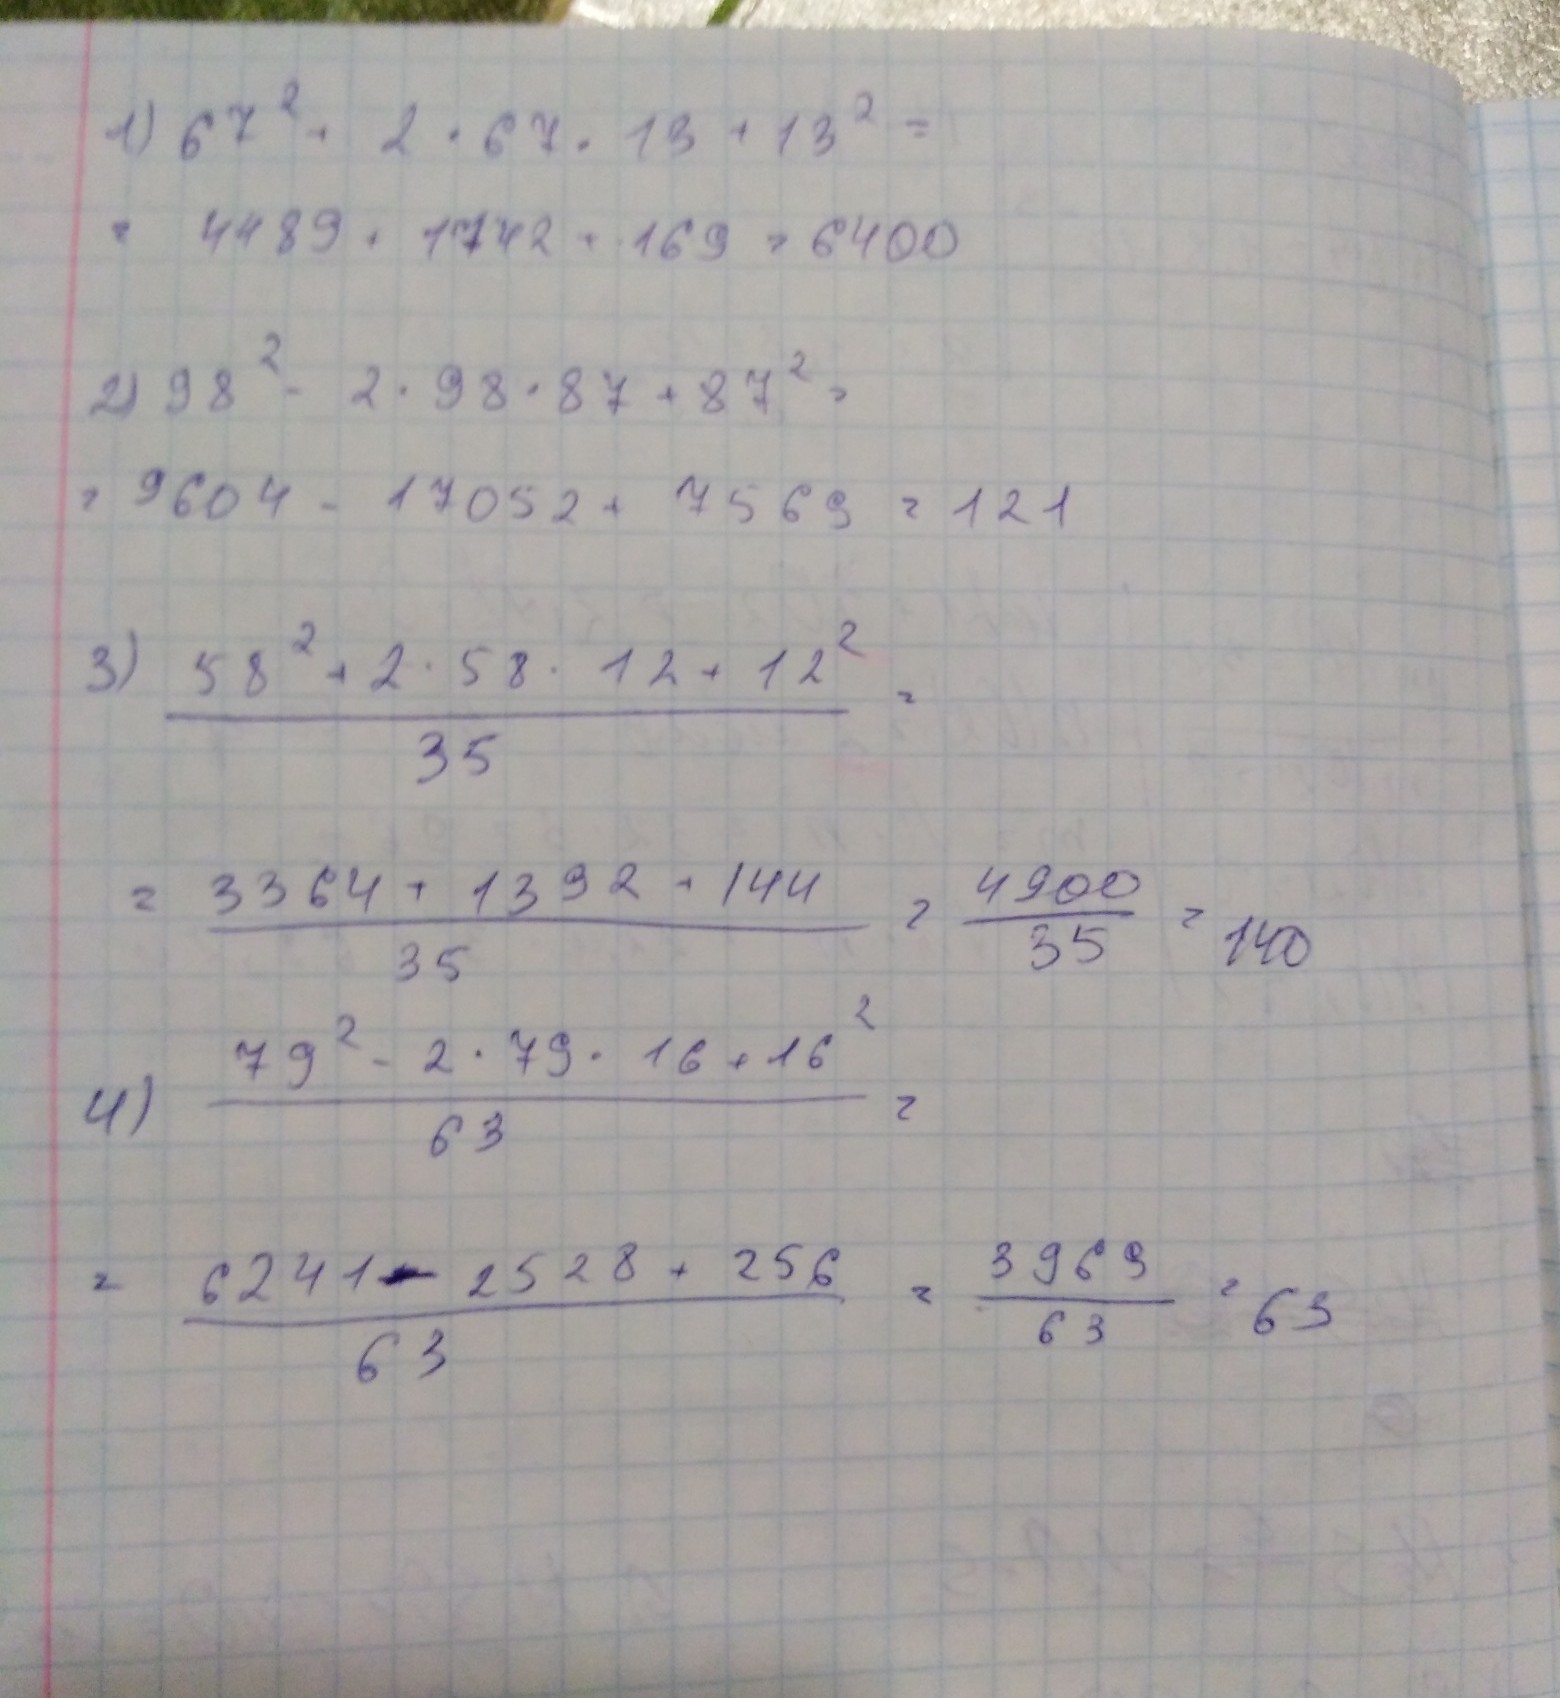 1) 67² + 2 · 67 · 13 + 13² =
= 4489 + 1742 + 169 = 6400
2) 98² - 2 · 98 · 87 + 87² =
= 9604 - 17052 + 7569 = 121
3) (58² + 2 · 58 · 12 + 12²) / 35 =
= (3364 + 1392 + 144) / 35 = 4900 / 35 = 140
4) (79² - 2 · 79 · 16 + 16²) / 63 =
= (6241 - 2528 + 256) / 63 = 3969 / 63 = 63